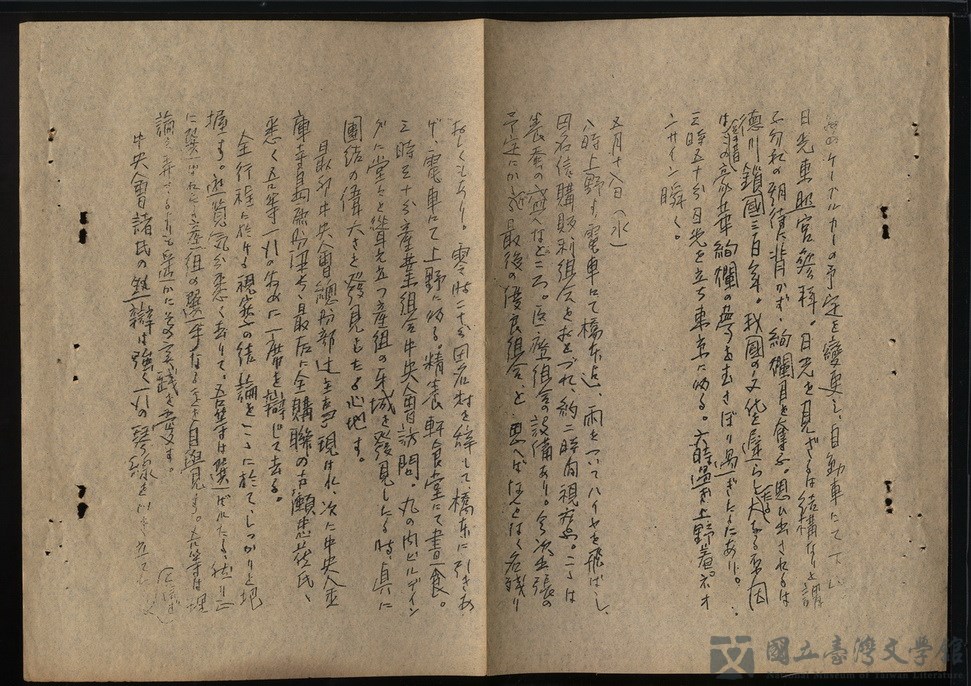 ケーブルカーの予定を変更し、自動車にて下り
日光東照宮参拝。日光を見ざるは結構なりと謂
ふ勿れの胡偉に背かず、絢爛目を奪ふ。思ひ出されるは
徳川鎖國三百年。我國の文化を遅らした大きな原因
は豪華絢爛の夢をむさぼり過ぎたるにあり。
三時五十分日光を立ち東京に帰る。六時過ぎ上野着。ネオ
ンサイン瞬く。
五月十八日(水)
八時上野より電車にて橋本迄、雨をついてハイヤを飛ばし、
田名信購販利組合をおとづれ約二時間視察。ここは
養蚕の盛んなところ。医療組合の設備あり。今次出張の
予定にか最後の優良組合、と思へばなんとなく名残り
おしくもあり。零時二十分田名村を辞して、橋本に引きあ
げ、電車にて上野に帰る。精養軒食堂にて昼食。
三時三十分産業組合中央會訪問。丸の内ビルデイン
グに堂々と聳え立つ産組の牙城を發見したる時、真に
團結の偉大さを發見したる心地す。
最初中央會總務部辻主事現はれ、次に中央金
庫寺島、最后に全購聯の声願忠茂氏、
悉く吾等一行の為めに一席を辯じて去る。
全行程に於ける視察の結論をここに於て、しっかりと把
握す。遊覧気分悉く去りて、吾等は選ばれたる、
産組の選手なることを自覺す。吾等は理
論を弄するよりも真実践を愛す。
中央會諸氏の熱辯は強く一行の琴線を